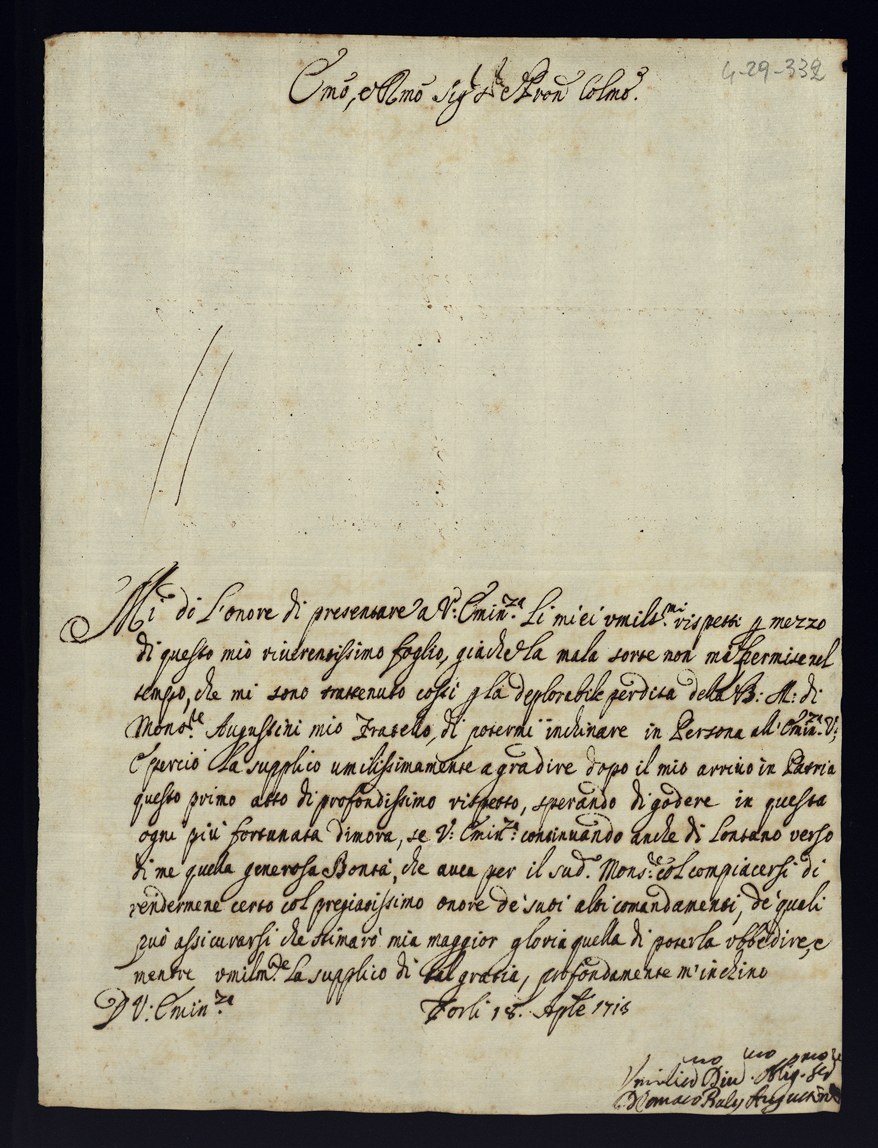 4-29-332
Emo, e Rmo Sig.r Sig.r e Pron Colmo.
Mi dò L'onore di presentare a V: Emin.za Li miei vmiliss.mi rispetti p mezzo
di questo mio riuerentissimo foglio, giache la mala sorte non mà permise nel
tempo, che mi sono trattenuto costì p la deplorabile perdita della B: M: di
Mons.re Augustini mio Fratello, di potermi inchinare in Persona all' Emin.za V:,
E perciò La supplico umilissimamente a gradire dopo il mio arriuo in Patria
questo primo atto di profondissimo rispetto, sperando di godere in questa
ogni più fortunata dimora, se V: Emin.za: continuando anche di Lontano verso
di me quella generosa Bontà, che auea per il sud.o Mons.re col compiacersi di
rendermene certo col pregiatissimo onore de' suoi alti comandamenti, de' quali
può assicurarsi che stimarò mia maggior gloria quella di poterla vbbedire, e
mentre vmilm.te La supplico di tal gratia, profondamente m'inchino
D V: Emin.za Forlì 18. Aple 1715
Vmilis.mo Diu.mo Oblig.mo Ser.re
Augustini